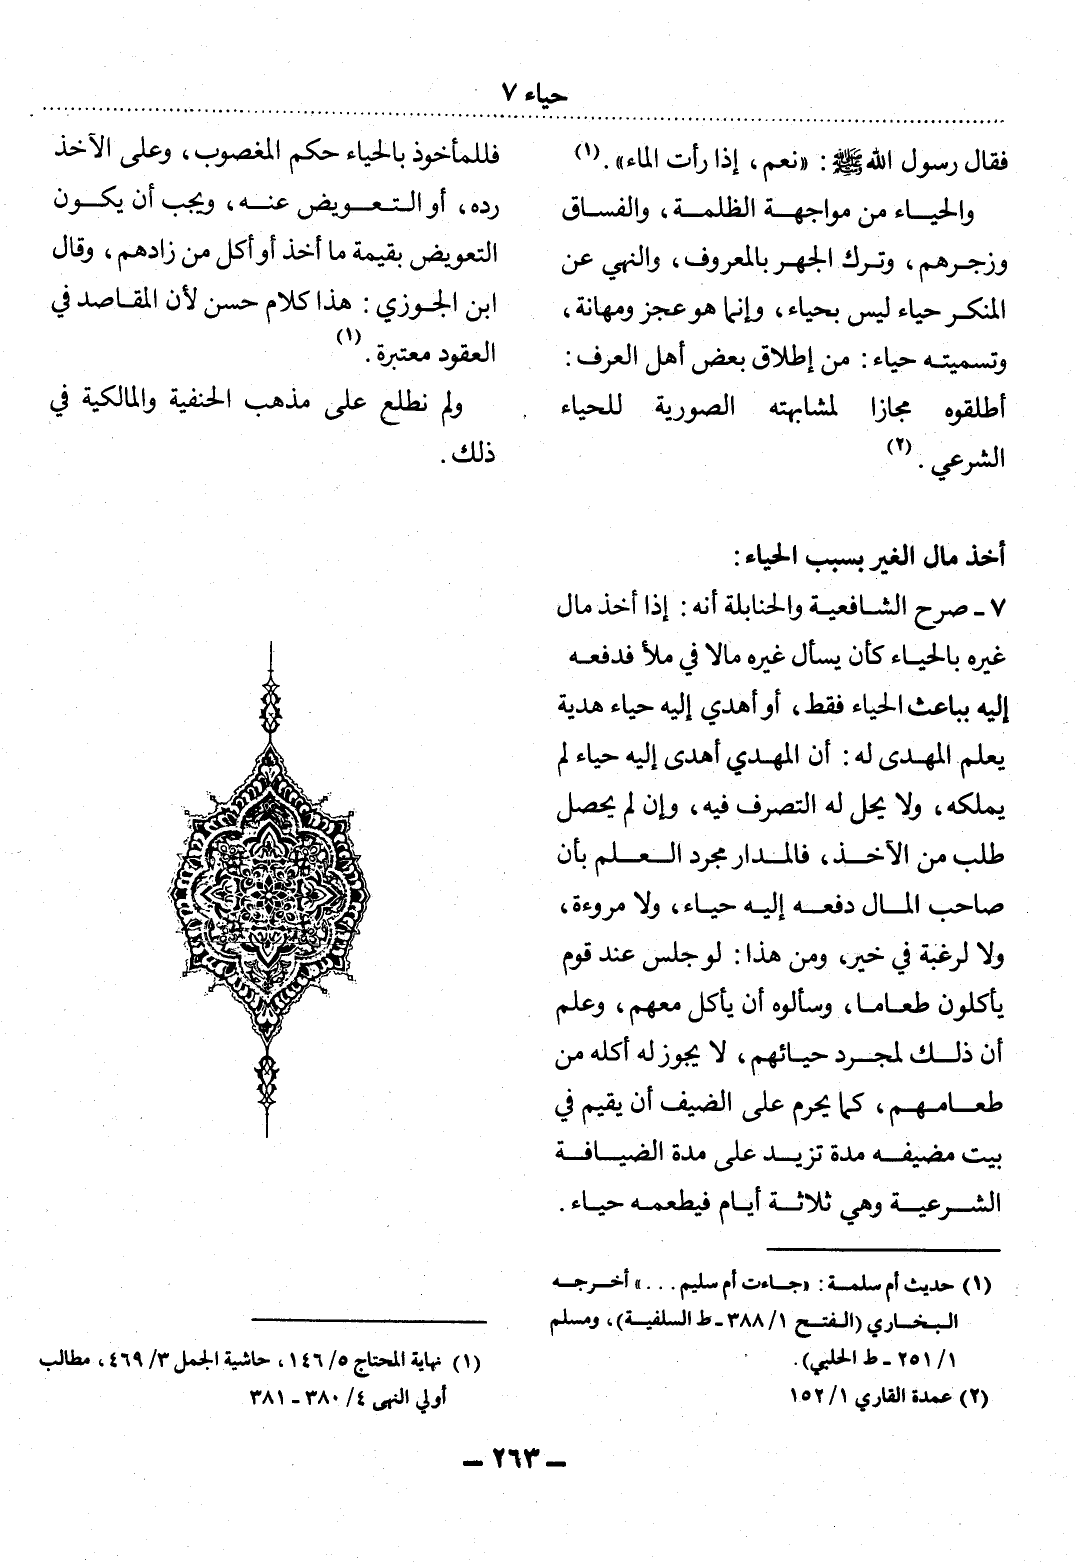 حياء ٧
فقال رسول الله ﷺ : «نعم، إذا رأت الماء» . (١)
والحياء من مواجهة الظلمة، والفساق
وزجرهم، وترك الجهر بالمعروف، والنهي عن
المنكر حياء ليس بحياء، وإنما هو عجز ومهانة،
وتسميته حياء : من إطلاق بعض أهل العرف :
أطلقوه مجازا لمشابهته الصورية للحياء
الشرعي . (٢)
أخذ مال الغير بسبب الحياء :
٧ ـ صرح الشافعية والحنابلة أنه : إذا أخذ مال
غيره بالحياء كأن يسأل غيره مالا في ملأ فدفعه
إليه بباعث الحياء فقط، أو أهدي إليه حياء هدية
يعلم المهدى له : أن المهدي أهدى إليه حياء لم
يملكه، ولا يحل له التصرف فيه، وإن لم يحصل
طلب من الآخذ، فالمدار مجرد العلم بأن
صاحب المال دفعه إليه حياء، ولا مروءة،
ولا لرغبة في خير، ومن هذا : لو جلس عند قوم
يأكلون طعاما، وسألوه أن يأكل معهم، وعلم
أن ذلك لمجرد حيائهم، لا يجوز له أكله من
طعامهم، كما يحرم على الضيف أن يقيم في
بيت مضيفه مدة تزيد على مدة الضيافة
الشرعية وهي ثلاثة أيام فيطعمه حياء .
(١) حديث أم سلمة : «جاءت أم سليم . . .» أخرجه
البخاري (الفتح ١/ ٣٨٨ ـ ط السلفية)، ومسلم
١/ ٢٥١ ـ ط الحلبي).
(٢) عمدة القاري ١/ ١٥٢
فللمأخوذ بالحياء حكم المغصوب، وعلى الآخذ
رده، أو التعويض عنه، ويجب أن يكون
التعويض بقيمة ما أخذ أو أكل من زادهم، وقال
ابن الجوزي : هذا كلام حسن لأن المقاصد في
العقود معتبرة . (١)
ولم نطلع على مذهب الحنفية والمالكية في
ذلك .
(١) نهاية المحتاج ٥/ ١٤٦، حاشية الجمل ٣/ ٤٦٩، مطالب
أولي النهى ٤/ ٣٨٠ ـ ٣٨١
ـ ٢٦٣ ـ